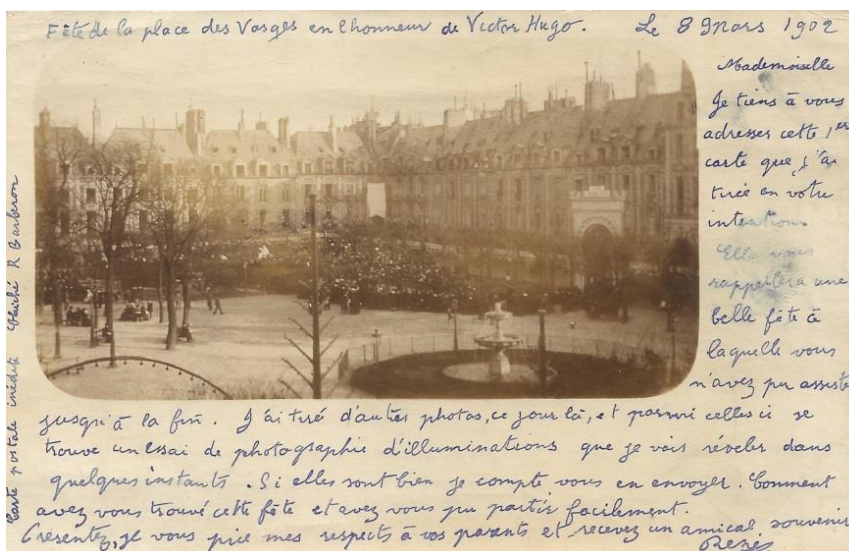 Fête de la place des Vosges en l'honneur de Victor Hugo. Le 8 Mars 1902
Mademoiselle
Je tiens à vous
adresser cette 1er
carte que j'ai
tirée en votre
intention
Elle vous
rappellera une
belle fête à
laquelle vous
n'avez pu assister
jusqu'à la fin. J'ai tiré d'autres photos, ce jour là, et parmi celles ci se
trouve un essai de photographie d'illuminations que je vais révéler dans
quelques instants. Si elles sont bien je compte vous en envoyer. Comment
avez vous trouvé cette fête et avez vous pu partir facilement.
Presentez, je vous prie mes respects à vos parents et recevez un amical souvenir
René
Carte postale inédite Cliché R Barberon